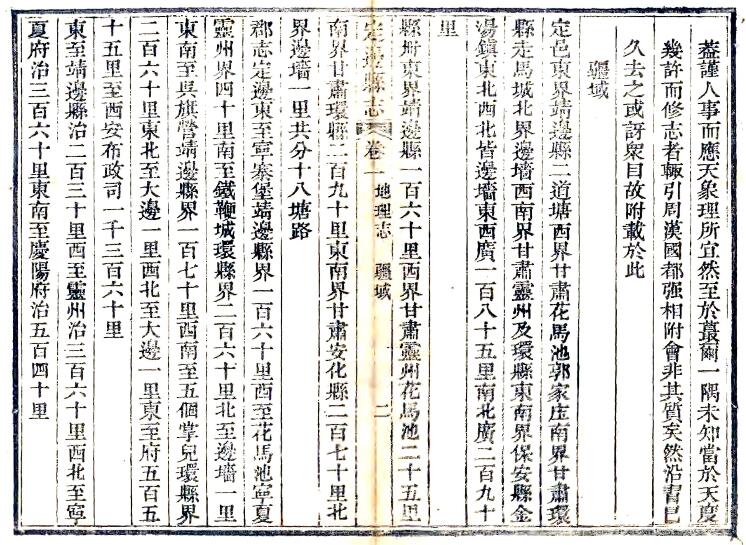 蓋謹人事而應天象理所宜然至於蕞爾一隅未知當於天度
幾許而修志者輙引周漢國都强相附會非其質矣然沿習已
久去之或訝衆目故附載於此
疆域
定邑東界靖邊縣二道塘西界甘肅花馬池郭家庄南界甘肅環
縣走馬城北界邊墻西南界甘肅靈州及環縣東南界保安縣金
湯鎮東北西北皆邊墻東西廣一百八十五里南北廣二百九十
里
定邊縣志 卷一 地理志 疆域 二
縣城東界靖邊縣一百六十里西界甘肅靈州花馬池二十五里
南界甘肅環縣二百九十里東南界甘肅安化縣二百七十里北
界邊墻一里共分十八塘路
郡志定邊東至寧塞堡靖邊縣界一百六十里西至花馬池寧夏
靈州界四十里南至鐵鞭城環縣界二百六十里北至邊墻一里
東南至吳旗營靖邊縣界一百七十里西南至五個掌兒環縣界
二百六十里東北至大邊一里西北至大邊一里東至府五百五
十五里至西安布政司一千三百六十里
東至靖邊縣治二百三十里西至靈州治三百六十里西北至寧
夏府治三百六十里東南至慶陽府治五百四十里